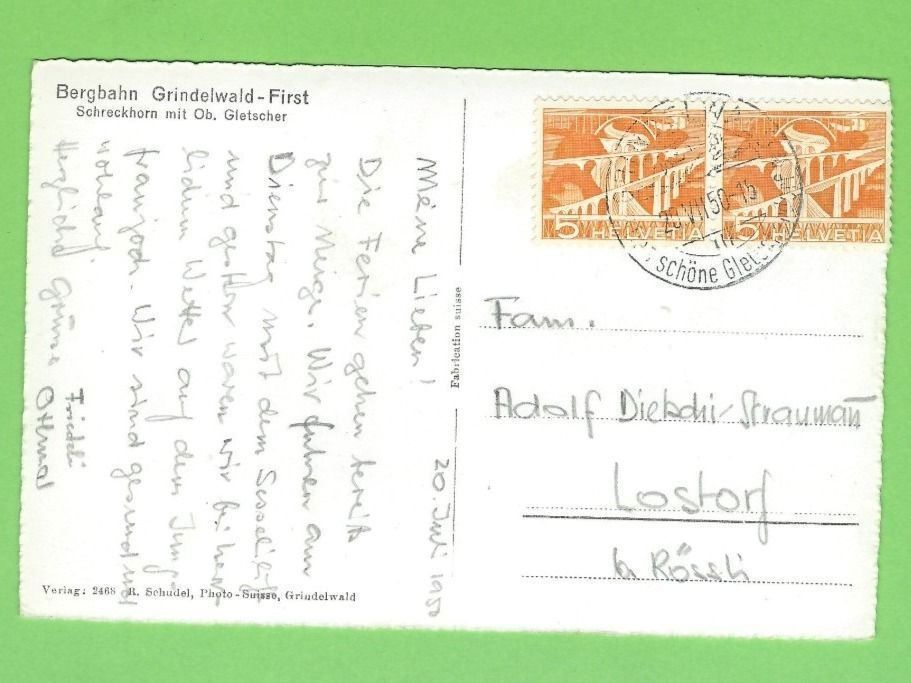 Bergbahn Grindelwald-First
Schreckhorn mit Ob. Gletscher
20. Juli 1950
Meine Lieben!
Die Ferien gehen bereits
zur Neige. Wir fuhren am
Dienstag mit dem Sessellift
und gestern waren wir bei herr-
lichem Wetter auf dem Jung-
fraujoch. Wir sind gesund und
wohlauf.
Herzliche Grüsse Othmar
Friedeli
Verlag: 2468 R. Schudel, Photo-Suisse, Grindelwald
Fabrication suisse
5 HELVETIA 5 HELVETIA
VII 50-15
schöne Glets
Fam.
Adolf Dietschi-Straumann
Lostorf
b Rössli